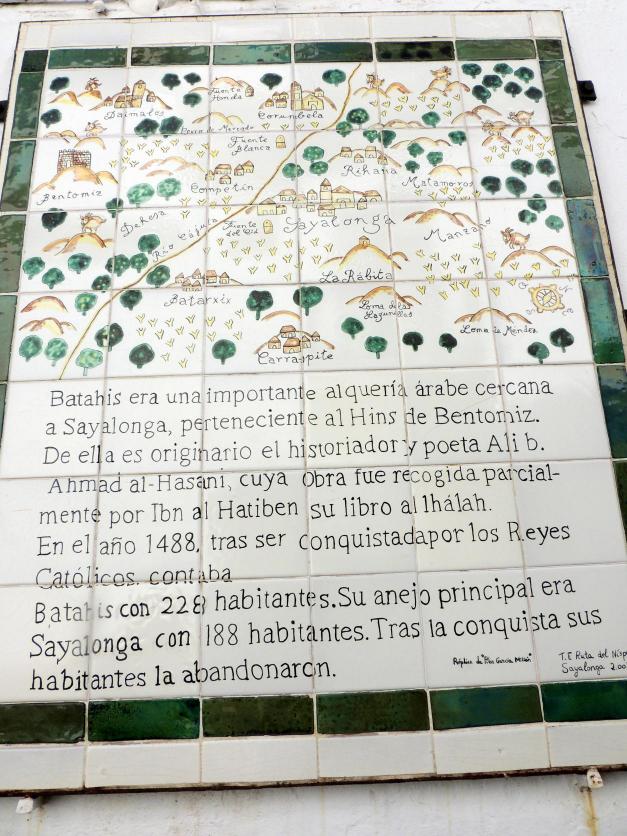 Daimalos
Fuente Honda
Corumbela
Fuente Blanca
Bentomiz
Competin
Rihana
Matamoros
Dehesa
Río Cájula
Fuente del Cid
Sayalonga
Manzano
La Rábita
Batarxix
Loma de las Lagunillas
Loma de Méndez
Carraspite
Batahis era una importante alquería árabe cercana
a Sayalonga, perteneciente al Hins de Bentomiz.
De ella es originario el historiador y poeta Ali b.
Ahmad al-Hasani, cuya obra fue recogida parcial-
mente por Ibn al Hatiben su libro al Ihálah.
En el año 1488, tras ser conquistadapor los Reyes
Católicos, contaba
Batahis con 228 habitantes.Su anejo principal era
Sayalonga con 188 habitantes.Tras la conquista sus
habitantes la abandonaron.
Réplica de
T.E Ruta del
Sayalonga